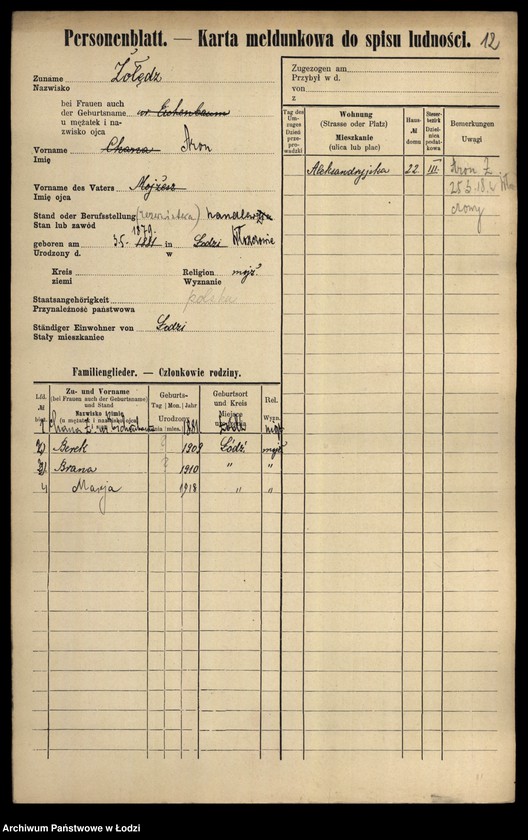 12
Personenblatt. — Karta meldunkowa do spisu ludności.
Zuname Żołędz
Nazwisko
bei Frauen auch
der Geburtsname ur. Eichenbaum
u mężatek i na-
zwisko ojca
Vorname Chana Aron
Imię
Vorname des Vaters Mojżesz
Imię ojca
Stand oder Berufsstellung (rezerwistka) handlarz
Stan lub zawód
1879.
geboren am 35. 1881 in Łodzi
Urodzony d. w
Kreis Religion mojż.
ziemi Wyznanie
Staatsangehörigkeit polska
Przynależność państwowa
Ständiger Einwohner von Łodzi
Stały mieszkaniec
Zugezogen am
Przybył w d.
von
z
Tag des Umzuges Dzień przeprowadzki
Wohnung
(Strasse oder Platz)
Mieszkanie
(ulica lub plac)
Haus- № domu
Steuerbezirk Dzielnica podatkowa
Bemerkungen
Uwagi
Aleksandryjska 22 III Aron Ż.
Familienglieder. — Członkowie rodziny.
Lfd. №
Zu- und Vorname
(bei Frauen auch der Geburtsname)
und Stand
Nazwisko i imię
(u mężatek i nazwisko ojca)
Geburts-
Tag Mon. Jahr
Urodzony
dnia mies.
Geburtsort
und Kreis
Miejsce
Rel.
Wyzn.
1 Chana 1881 Łódź mojż
2) Berek 1909 Łódź. mojż
3) Brana 1910 " "
4 Marja 1918 " "
Archiwum Państwowe w Łodzi